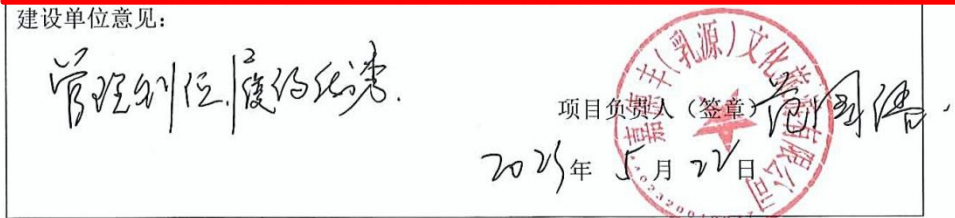 建设单位意见：
管理到位，履约优秀.
项目负责人（签章）
2025年 5月 22日
嘉惠丰（乳源）文化旅游有限公司